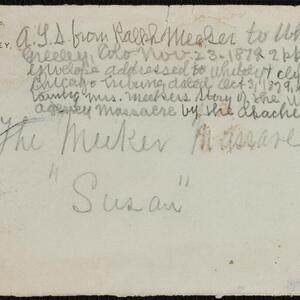 EY,
A.L.S from Ralph Meeker to Wh
Greeley, Colo Nov-23-1879 2pp
Envelope addressed to Whitley + Cly
Chicago - dated Oct 3, 1879,
Mrs. Meekers story of the U
Agency Massacre by the Apache
The Meeker Massacre
"Susan"